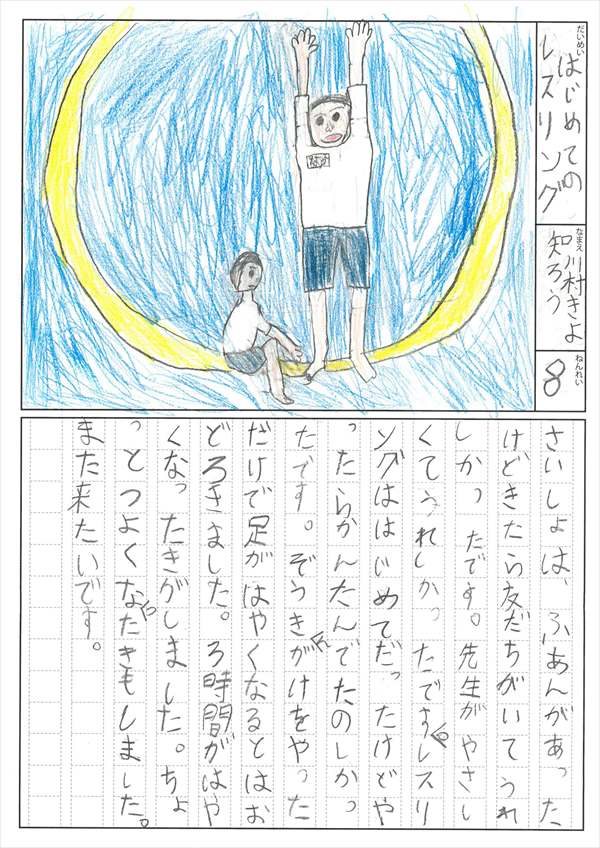 だいめい
はじめての
レスリング
なまえ
川村きよ
知ろう
ねんれい
8
さいしょは、ふあんがあった
けどきたら友だちがいてうれ
しかったです。先生がやさし
くてうれしかったです。レスリ
ングははじめてだったけどや
ったらかんたんでたのしかっ
たです。ぞうきんがけをやった
だけで足がはやくなるとはお
どろきました。ろ時間がはや
くなったきがしました。ちょ
っとつよくなったきもしました。
また来たいです。